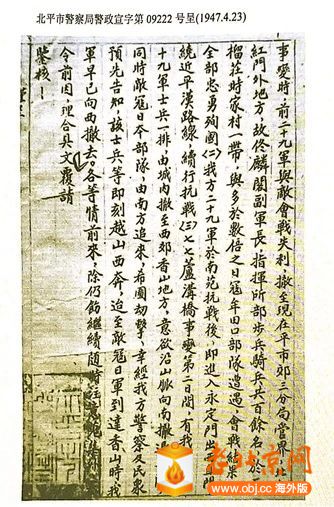 北平市警察局警政宣字第 09222 号呈(1947.4.23)
事變時前二十九軍與敵會戰失利撤至現在平市郊三分局管界北
紅門外地方故佟麟閣副軍長指揮所部步兵騎兵共百餘名於
榴莊時家村一帶與多於數倍之日寇牟田口部隊遭遇會戰結果
全部忠勇殉國(二)我方二十九軍於南苑抗戰後即進入永定門出西門
繞近平漢路線續行抗戰(三)七七蘆溝橋事變第一日間有我
十九軍士兵一排由城內撤至西郊香山地方意欲沿山脈向南撤
同時敵寇日本部隊由南方追來希圖刼擊幸經我方警察及民衆
預先告知該士兵等即刻越山西奔迨至敵寇日軍到達香山時我
軍早已向西撤去各等情前來除仍飭繼續隨時注意
令前因理合具文覆請
鑒核
老北京网
www.obj.cc 海外版